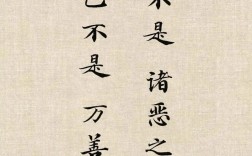 不是 诸恶之
己不是 万善